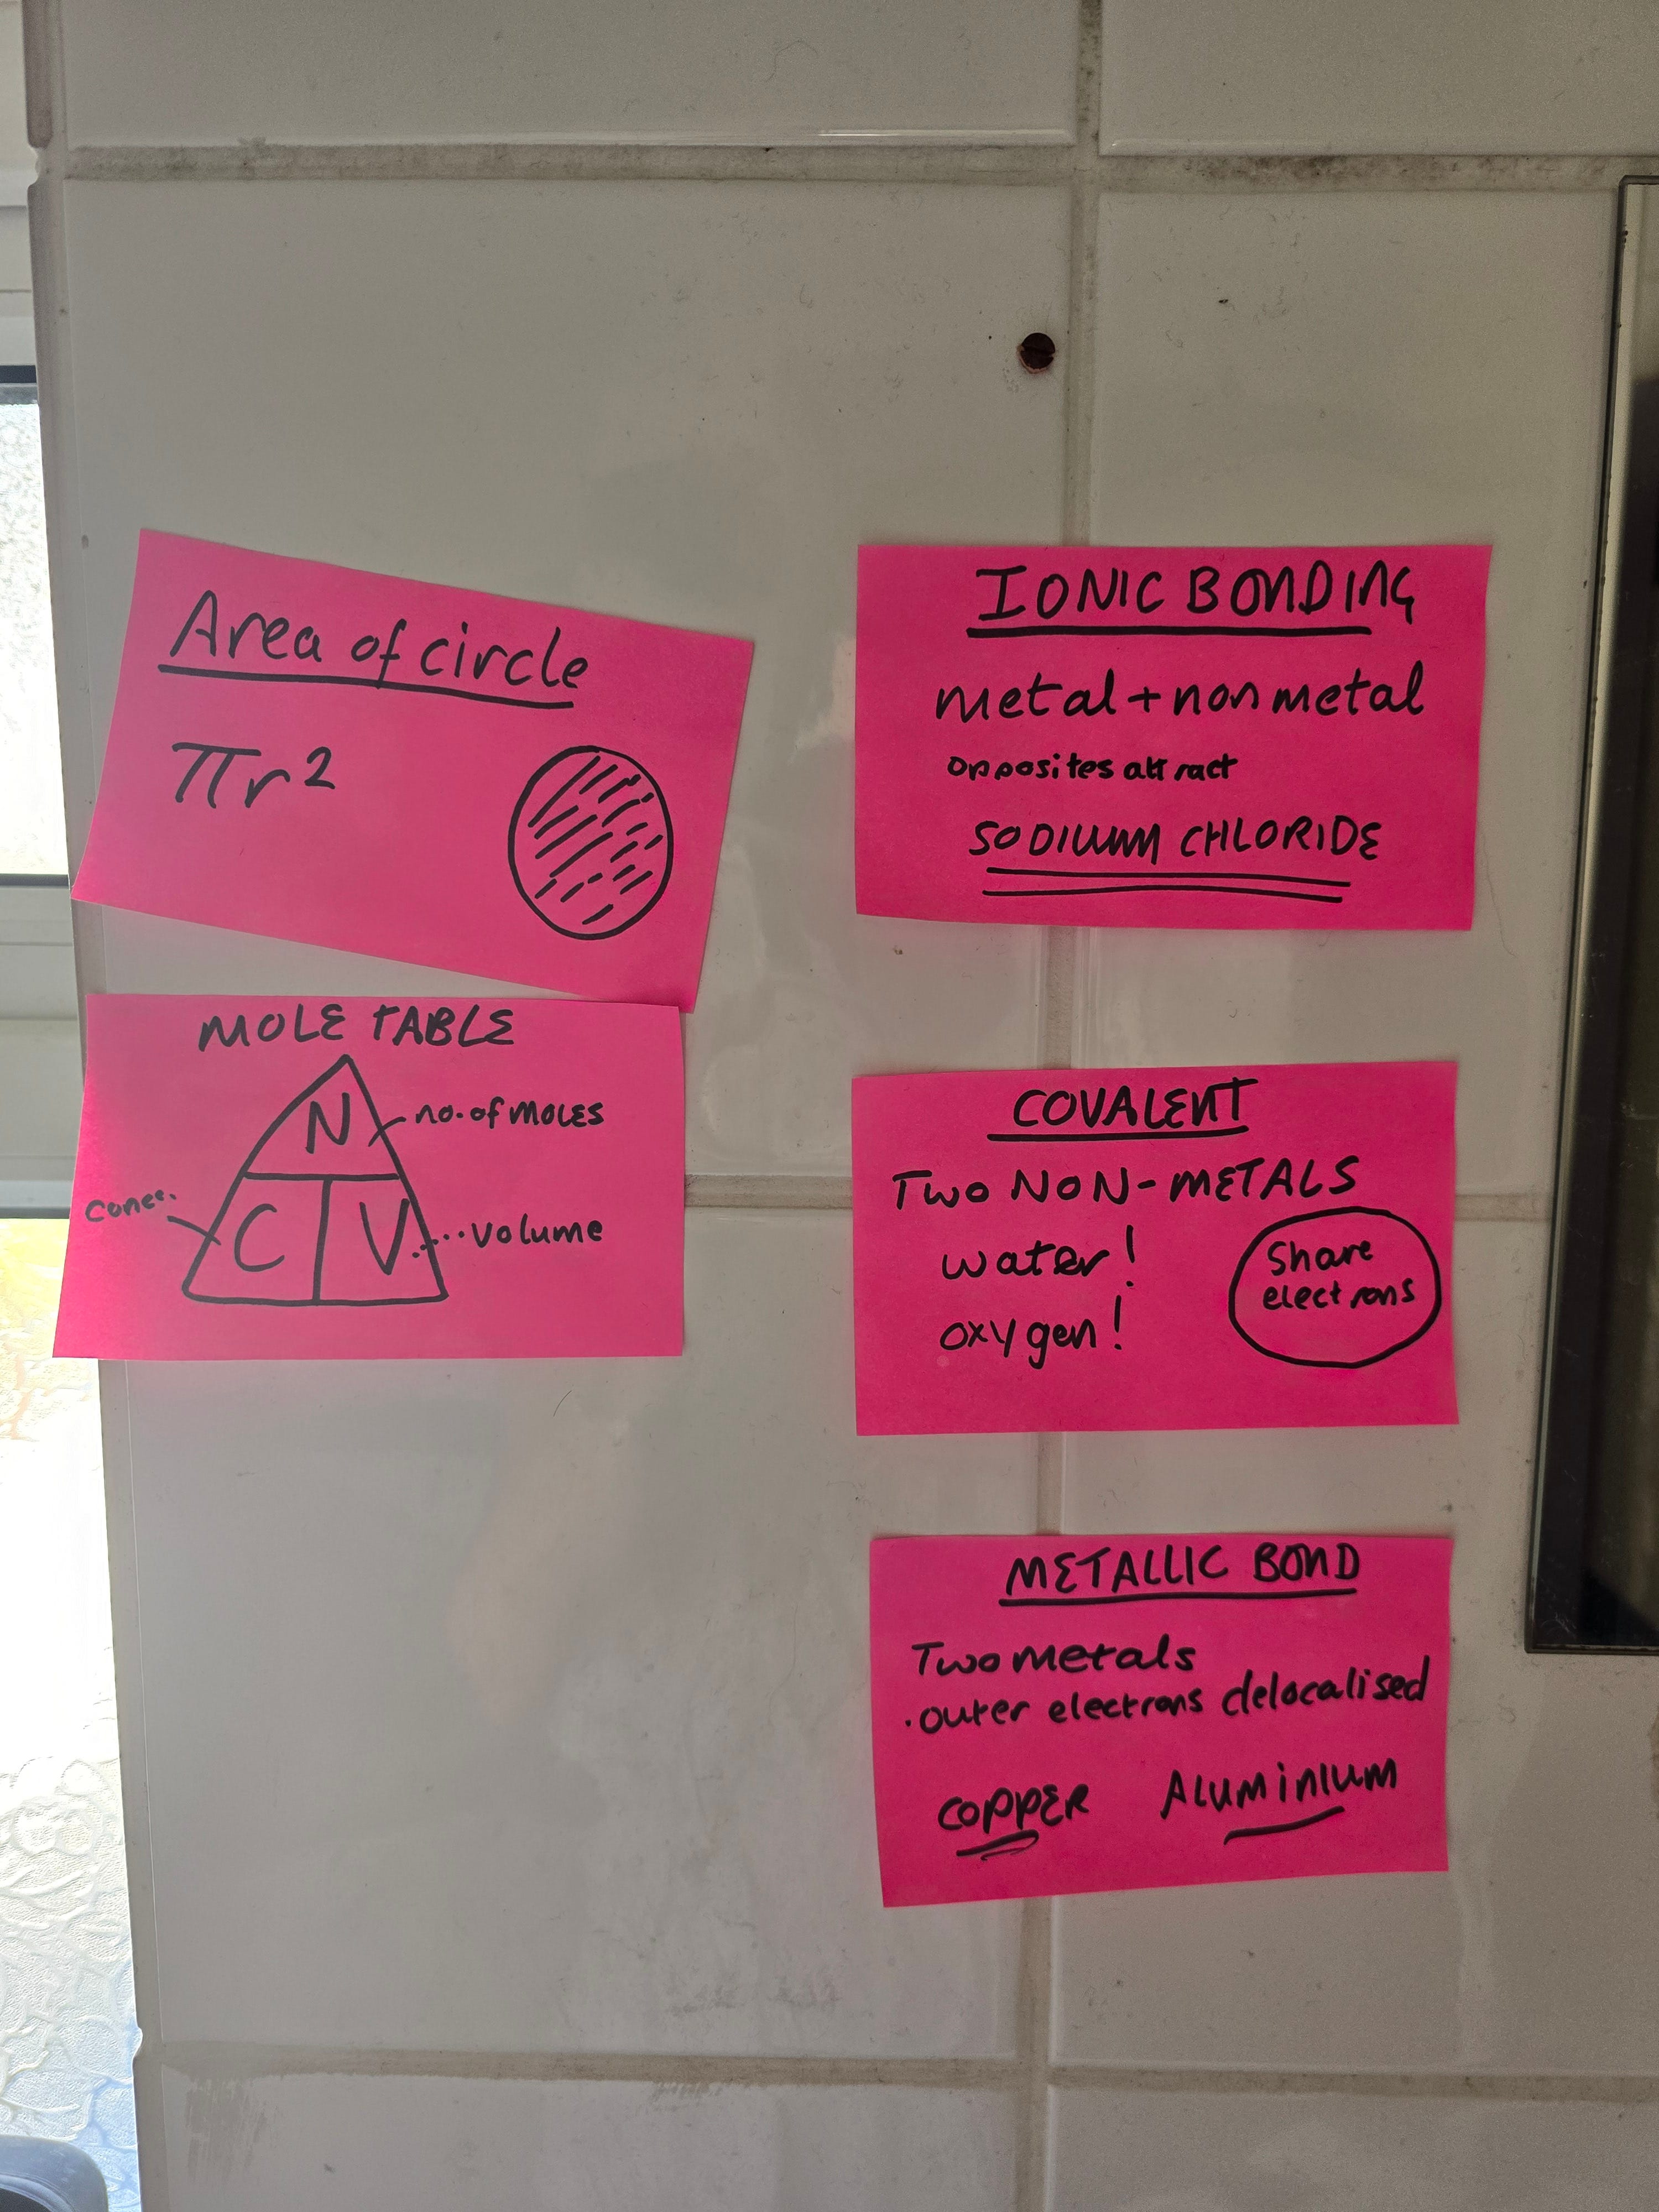 Area of circle
πr²
MOLE TABLE
N
no. of MOLES
conc.
C
V
volume
IONIC BONDING
metal + non metal
opposites attract
SODIUM CHLORIDE
COVALENT
TWO NON-METALS
water!
oxygen!
Share
electrons
METALLIC BOND
Two metals
. outer electrons delocalised
COPPER ALUMINIUM